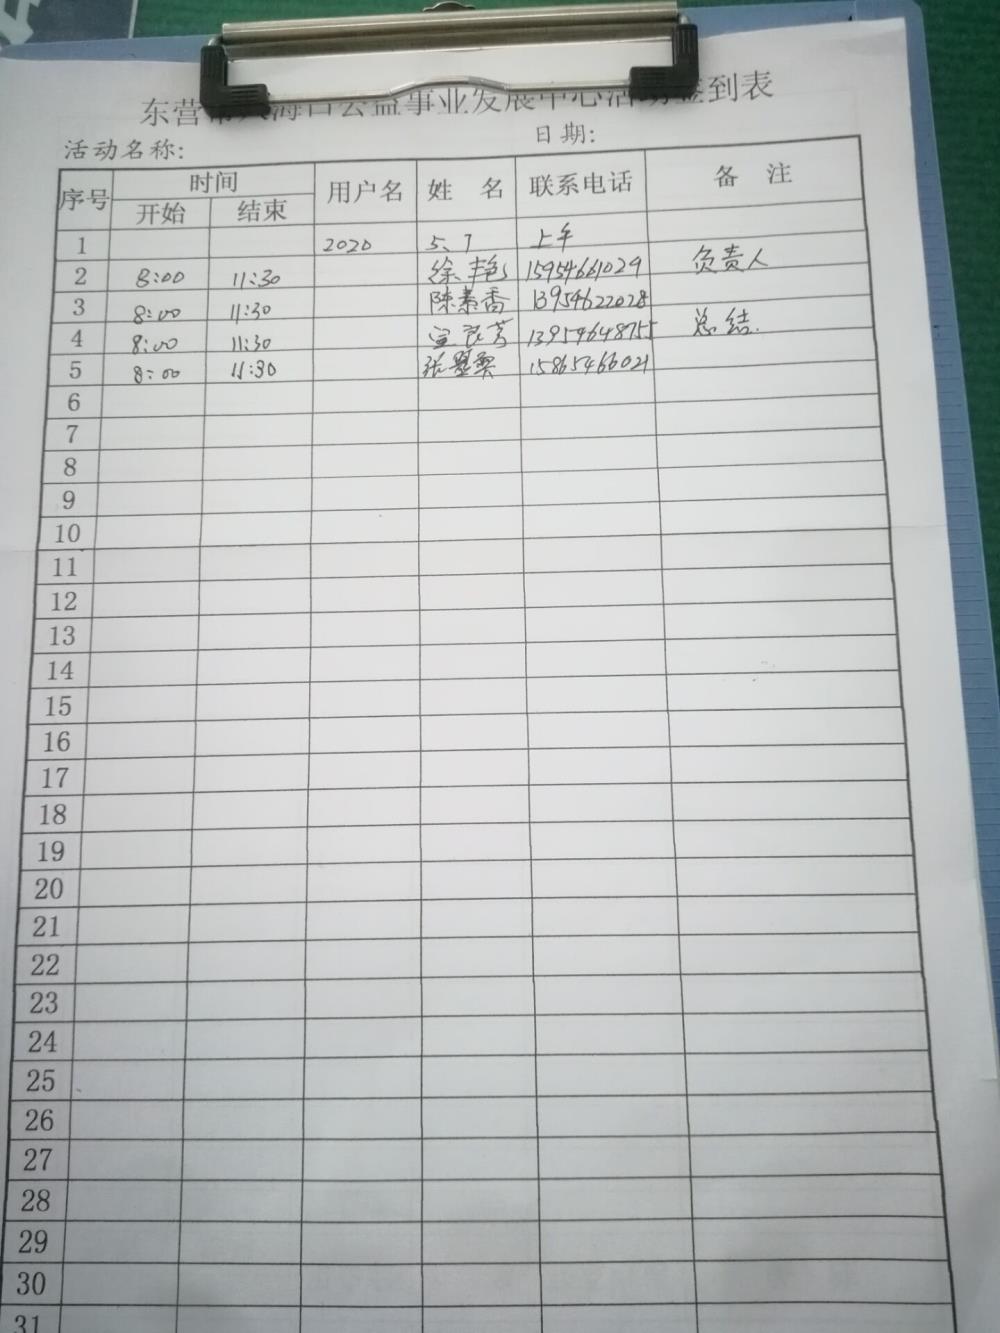 东营 海 公益事业发展中心活动签到表
活动名称: 日期:
序号 时间 用户名 姓 名 联系电话 备 注
开始 结束
1 2020 5、7 上午
2 8:00 11:30 徐丰艳 15954661029 负责人
3 8:00 11:30 陈素香 13954622028
4 8:00 11:30 13954648755 总结.
5 8:00 11:30 张 15865466021
6
7
8
9
10
11
12
13
14
15
16
17
18
19
20
21
22
23
24
25
26
27
28
29
30
31